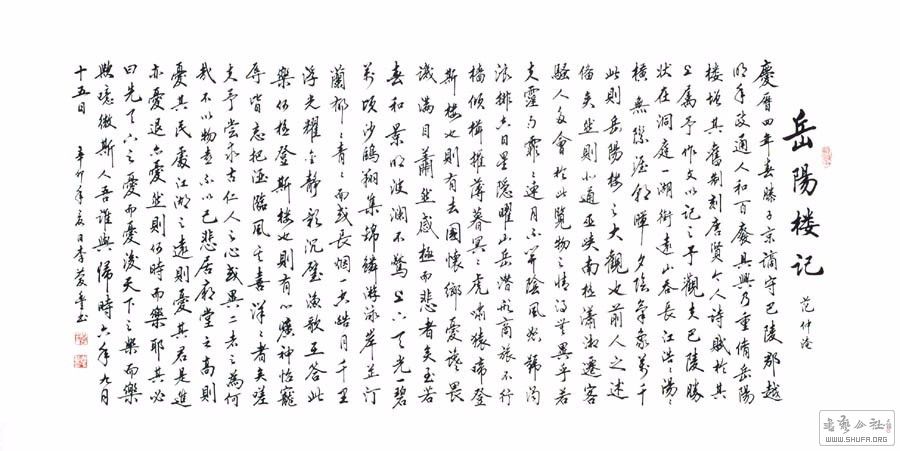 岳陽楼记
范仲淹
慶曆四年春滕子京謫守巴陵郡越
明年政通人和百廢具興乃重脩岳陽
楼增其舊制刻唐賢今人詩賦於其
上属予作文以记之予觀夫巴陵勝
状在洞庭一湖銜遠山吞長江浩〻湯〻
橫無際涯朝暉夕陰氣象萬千
此則岳陽楼之大觀也前人之述
俻矣然則北通巫峡南極瀟湘遷客
騷人多會於此覽物之情得無異乎若
夫霪雨霏〻連月不開陰風怒號濁
浪排空日星隱曜山岳潛形商旅不行
檣傾楫摧薄暮冥〻虎嘯猿啼登
斯楼也則有去國懷鄉憂讒畏
譏滿目蕭然感極而悲者矣至若
春和景明波瀾不驚上下天光一碧
萬頃沙鷗翔集錦鱗游泳岸芷汀
蘭郁〻青〻而或長烟一空皓月千里
浮光耀金靜影沉璧漁歌互答此
樂何極登斯楼也則有心曠神怡寵
辱皆忘把酒臨風其喜洋〻者矣嗟
夫予嘗求古仁人之心或異二者之為何
哉不以物喜不以己悲居廟堂之高則
憂其民處江湖之遠則憂其君是進
亦憂退亦憂然則何時而樂耶其必
曰先天下之憂而憂後天下之樂而樂
歟噫微斯人吾誰與歸時六年九月
十五日
辛卯年夏日李
书艺公社
WWW.SHUFA.ORG